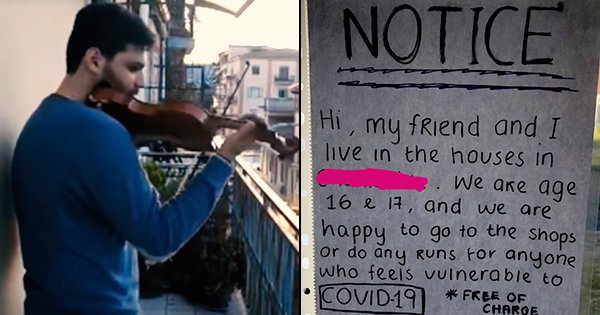 NOTICE
Hi, my friend and I
live in the houses in
. We are age
16 & 17, and we are
happy to go to the shops
or do any runs for anyone
who feels vulnerable to
COVID-19 * FREE OF
CHARGE